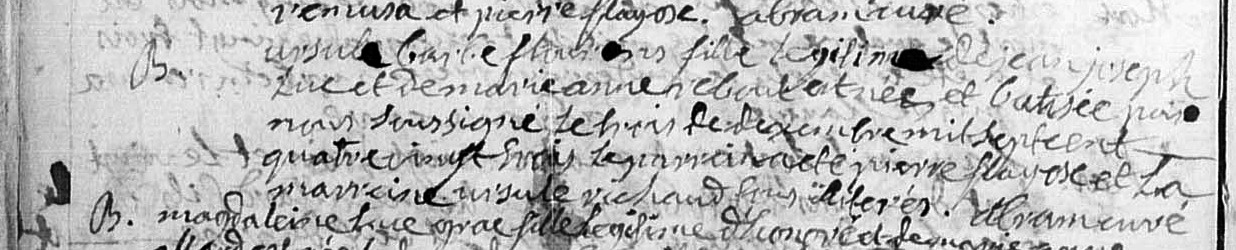 remusa et pierre flayose. abram curé.
B. ursule barbe fille legitime de jean joseph
Luc et de marie anne reboul est née et batisée par
nous soussigné le trois de decembre mil sept cent
quatre vingt trois le parrein a eté pierre flayose et la
marreine ursule richaud tous illiterés. abram curé
B. magdaleine Luce grac fille legitime d'honoré et de marie